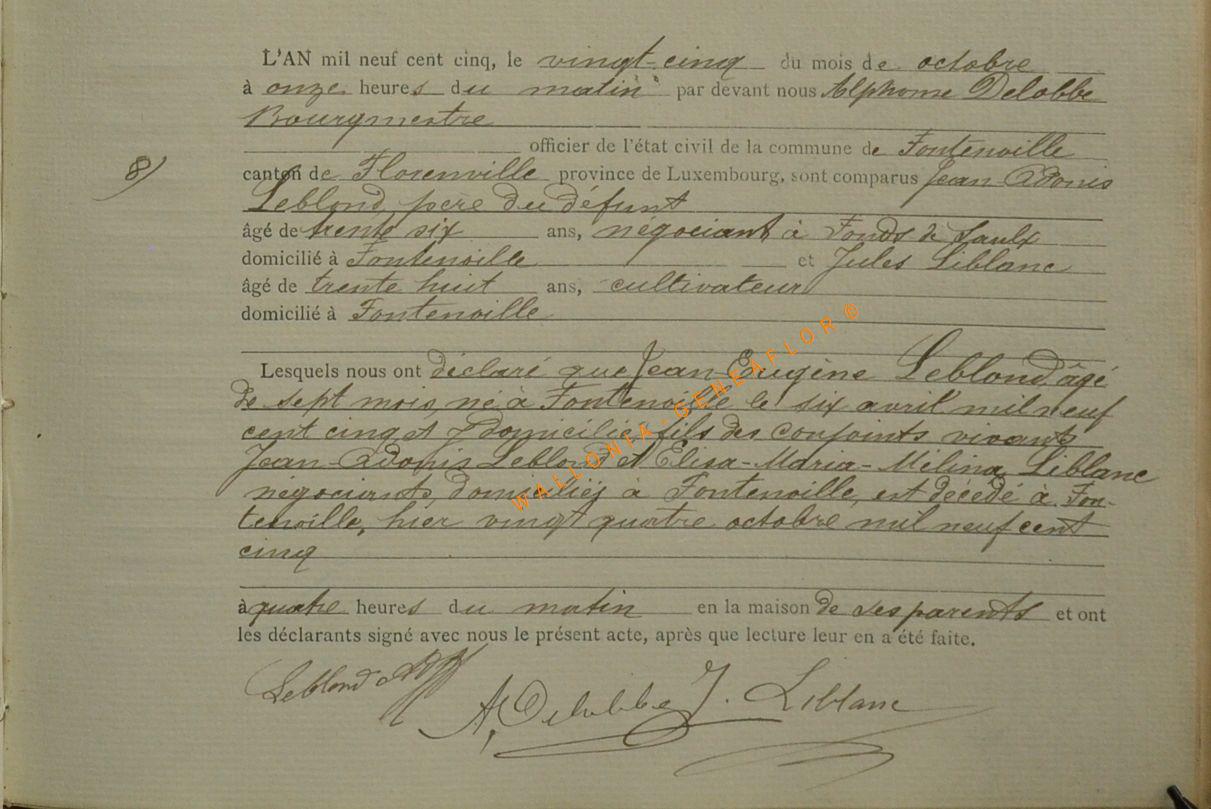 L'AN mil neuf cent cinq, le vingt-cinq du mois de octobre
à onze heures du matin par devant nous Alphonse Delobbe
Bourgmestre
officier de l'état civil de la commune de Fontenoille
8) canton de Florenville province de Luxembourg, sont comparus Jean Adonis
Leblond, père du défunt
âgé de trente six ans, négociant à Fonds de Saulx
domicilié à Fontenoille et Jules Liblanc
âgé de trente huit ans, cultivateur
domicilié à Fontenoille
Lesquels nous ont déclaré que Jean-Eugène Leblond âgé
de sept mois, né à Fontenoille le six avril mil neuf
cent cinq et y domicilié, fils des conjoints vivants
Jean-Adonis Leblond et Elisa-Maria-Mélina Liblanc
négociants, domiciliés à Fontenoille, est décédé à Fon-
tenoille, hier vingt quatre octobre mil neuf cent
cinq
à quatre heures du matin en la maison de ses parents et ont
les déclarants signé avec nous le présent acte, après que lecture leur en a été faite.
Leblond A. Delobbe J. Liblanc
WALLONIA-GENEAFLOR ©